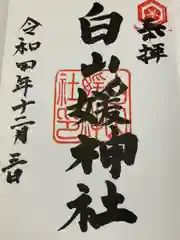 奉拝
白山媛神社
令和四年十二月三日